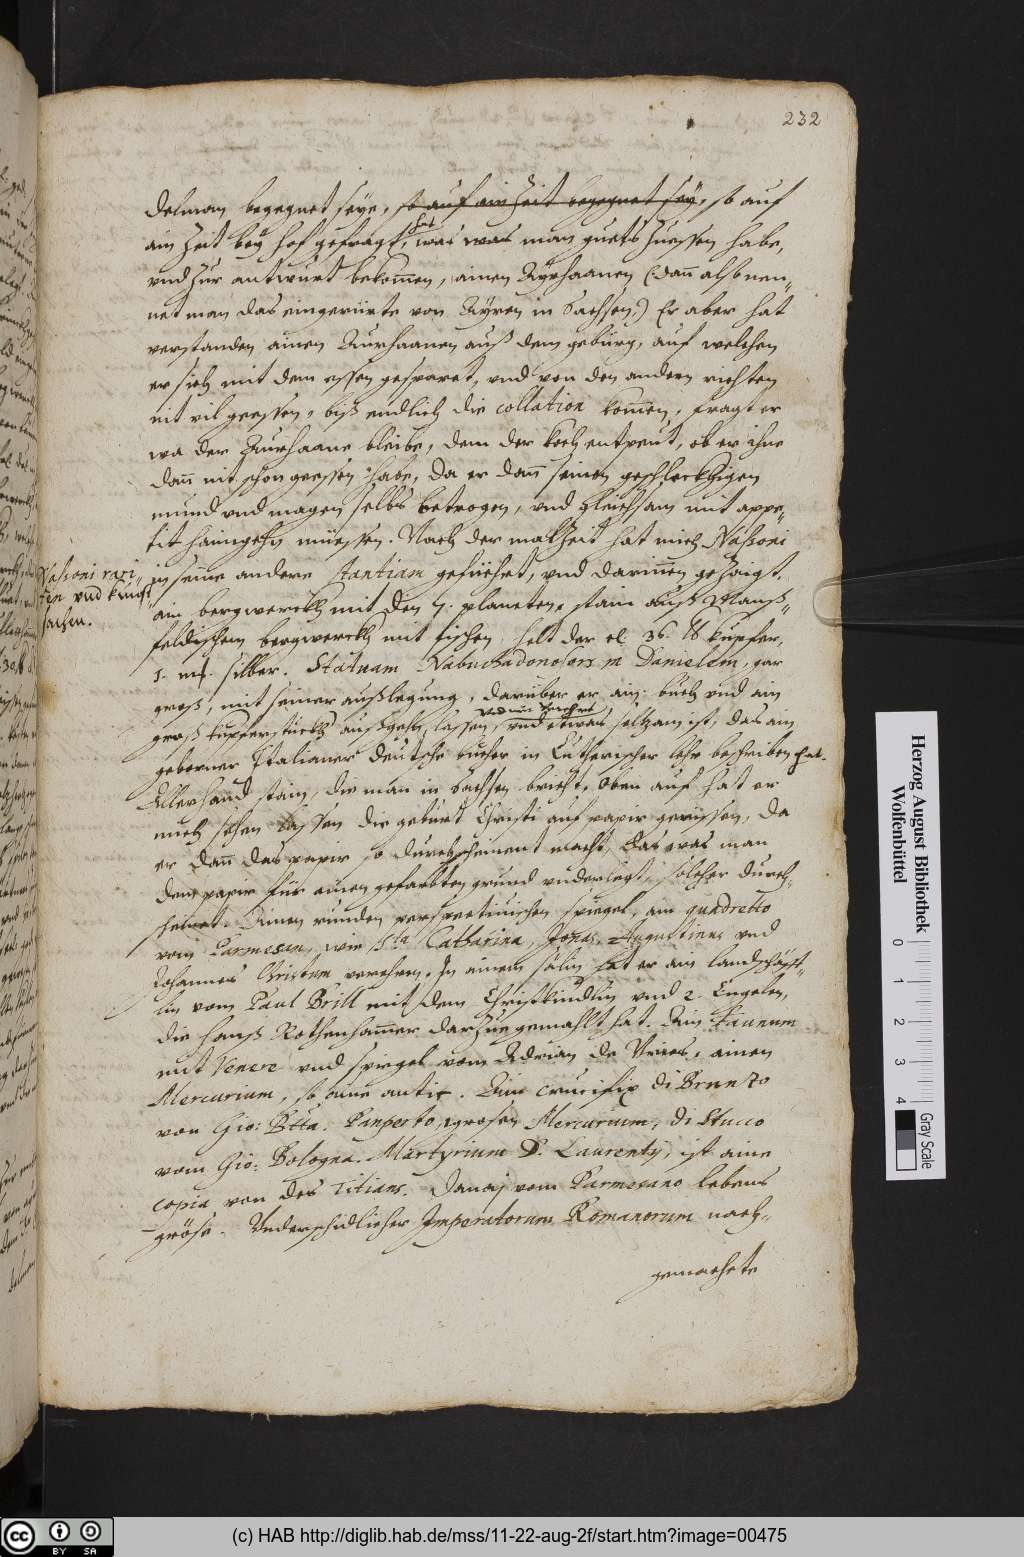 232
delman begegnet seye, so auf ain Zeit begegnet sey, so auf
ain Zeit bey hof gefragt, was was man guets Zuessen habe,
vnd Zur antwurt bekom̄en, ainen Ayrhaanen (dan̄ also nen„
net man das eingerürte von Ayren in Sachsen,) Er aber hat
verstanden ainen Aurhaanen auß dem gebürg, auf welchen
er sich mit dem essen gesparet, vnd von den andern richten
nit vil geessen, biß endlich die collation kom̄en, fragt er
wa der Aurhaane bleibe, dem der koch entpeut, ob er ihne
dan̄ nit schon geessen habe, da er dan̄ seinen geschleckhigen
mund vnd magen selbs betrogen, vnd gleichsam mit appe„
tit haimgehn müessen. Nach der malZeit hat mich Nossoni
Nossoni rari„
teten vnd kunst
sachen.
in seine andere stantiam gefüehrt, vnd darin̄en geZaigt,
ain bergwerckh mit den 7. planeten, stain auß Manß„
feldischem bergwerckh mit fischen helt der cl. 36. lb kupfer,
1. m. silber. Statuam Nabuchadonosors in Danielem, gar
groß, mit seiner außlegung, darüber er ain buch vnd ain
groß kupferstuckh außgehn lassen, vnd etwas seltzam ist, das ain
geborner Italianer deutsche büecher in Lutherischer lehr beschriben hat.
Allerhand stain, die man in Sachsen bricht, Oben auf hat er
mich sehen lassen die geburt Christi auf papir gerissen, da
er dan̄ das papir so durchscheinent macht, das was man
dem papir für ainen gefarbten grund vnderlegt, solcher durch„
scheinet. Ainen runden perspectivischen spiegel, ain quadretto
vom Parmesan, wie Sta Catharina, Augustinus vnd
Johannes Christum verehren. In ainem sälin hat er ain landschäfft„
lin vom Paul Brill mit dem Christkindlin vnd 2. Engelen,
die Hanß Rothenham̄er darZue gemahlt hat. Ain Faunum
mit Venere vnd spiegel vom Adrian de Vries, ainen
Mercurium, so aine antic. Ain crucifix di Brunzo
von Gio: Btta. ain grosen Mercurium, di Stucco
vom Gio: Bologna. Martyrium D. Laurentij, ist aine
copia von des Titians. Danaj vom Parmesano lebens
gröse. Vnderschidlicher Imperatorum Romanorum nach„
gemachte
Herzog August Bibliothek
Wolfenbüttel
0 1 2 3 4
Gray Scale
cc BY SA
(c) HAB http://diglib.hab.de/mss/11-22-aug-2f/start.htm?image=00475